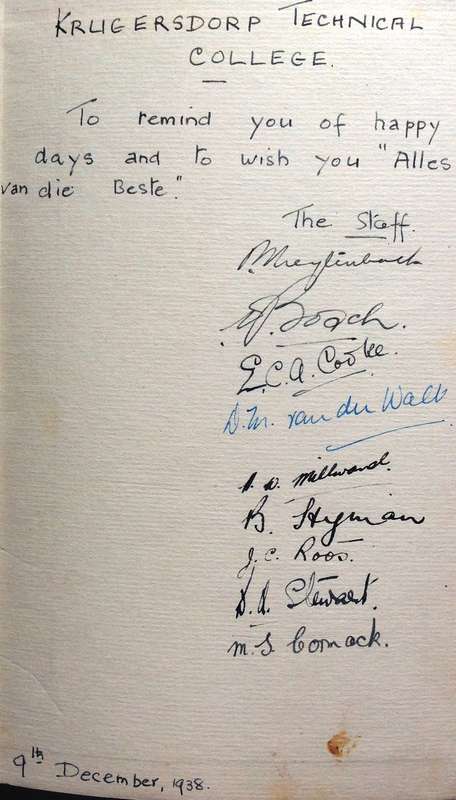 KRUGERSDORP TECHNICAL
COLLEGE.
To remind you of happy
days and to wish you "Alles
van die Beste."
The Staff.
E.C.A. Cooke.
D.M. van der Walt
Millward.
B. Hyman
J.C. Roos.
D.A. Stewart.
M.S. Cormack.
9th December, 1938.